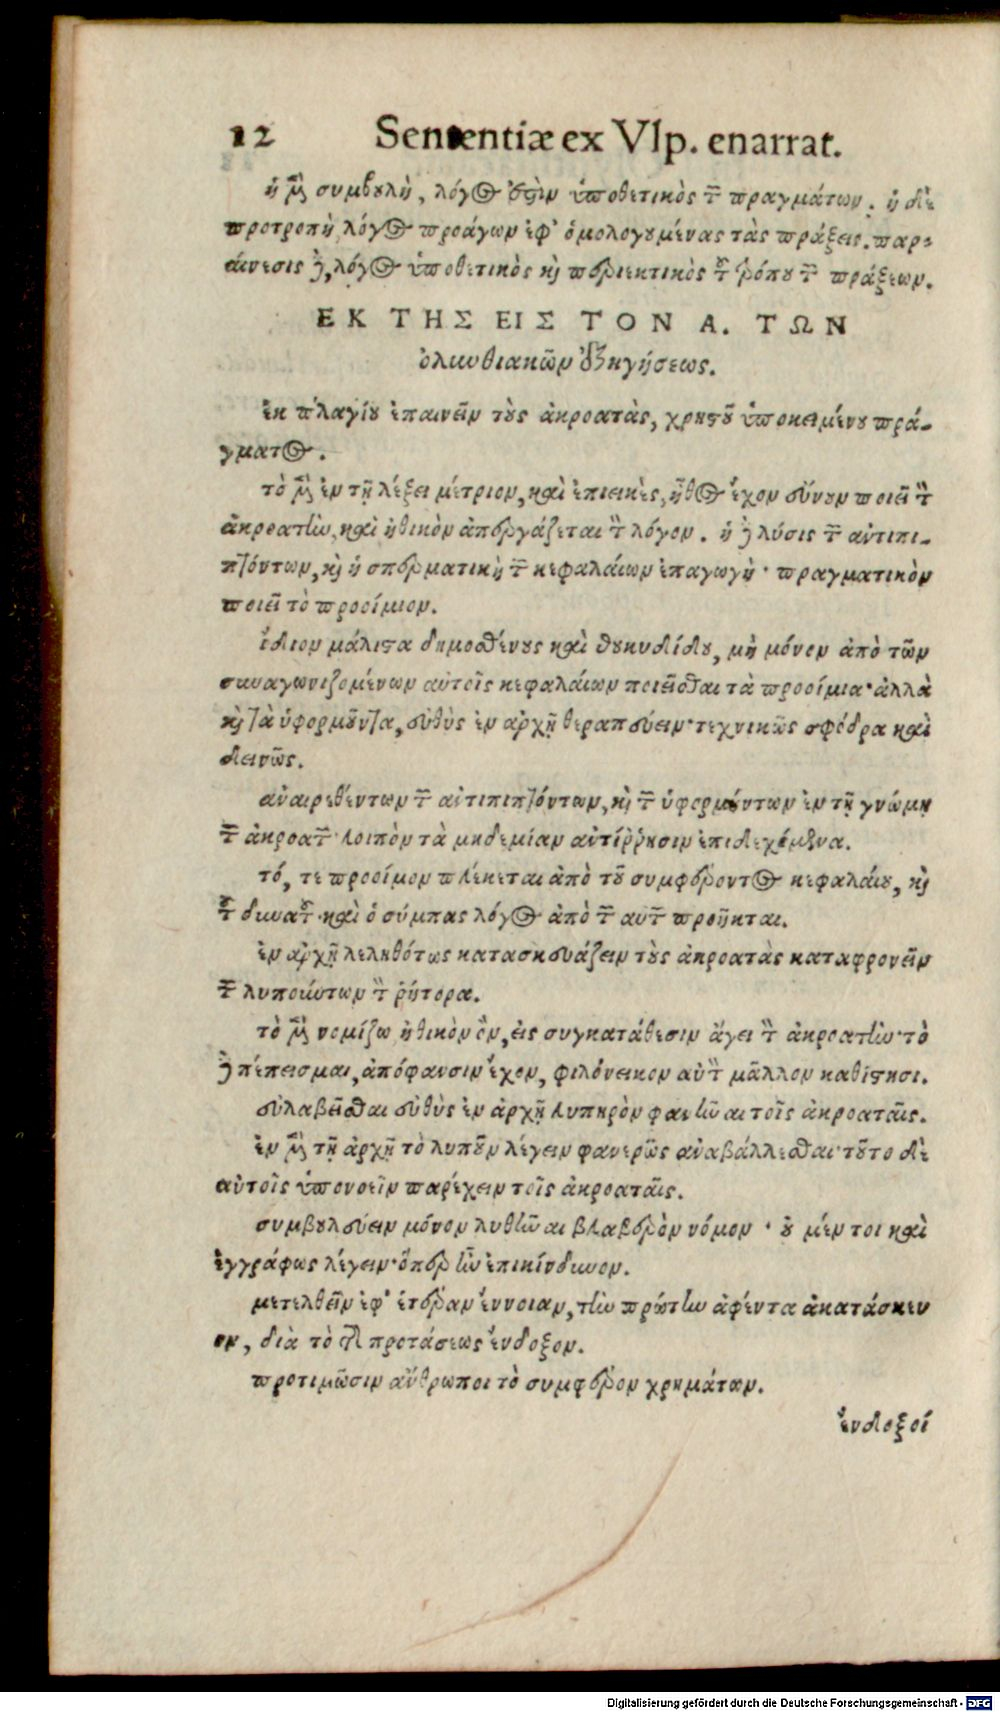 12 Sententiæ ex Vlp. enarrat.
ἡ μὲν συμβουλὴ, λόγος ἐστὶν ὑποθετικὸς τῶν πραγμάτων. ἡ δὲ
προτροπὴ λόγος προάγων ἐφ' ὁμολογουμένας τὰς πράξεις. παρ-
αίνεσις δὲ, λόγος ὑποθετικὸς καὶ περιεκτικὸς τοῦ τρόπου τῶν πράξεων.
ΕΚ ΤΗΣ ΕΙΣ ΤΟΝ Α. ΤΩΝ
ὀλυνθιακῶν ἐξηγήσεως.
ἐκ πλαγίου ἐπαινεῖν τοὺς ἀκροατὰς, χρηστοῦ ὑποκειμένου πρά-
γματος.
τὸ μὲν ἐν τῇ λέξει μέτριον, καὶ ἐπιεικὲς, ἦθος ἔχον εὔνουν ποιεῖ τὸν
ἀκροατὴν, καὶ ἠθικὸν ἀπεργάζεται τὸν λόγον. ἡ δὲ λύσις τῶν ἀντιπι-
πτόντων, καὶ ἡ σπερματικὴ τῶν κεφαλαίων ἐπαγωγὴ· πραγματικὸν
ποιεῖ τὸ προοίμιον.
ἴδιον μάλιστα δημοσθένους καὶ θουκυδίδου, μὴ μόνον ἀπὸ τῶν
συναγωνιζομένων αὐτοῖς κεφαλαίων ποιεῖσθαι τὰ προοίμια· ἀλλὰ
καὶ τὰ ὑφορμοῦντα, εὐθὺς ἐν ἀρχῇ θεραπεύειν· τεχνικῶς σφόδρα καὶ
δεινῶς.
ἀναιρεθέντων τῶν ἀντιπιπτόντων, καὶ τῶν ὑφορμούντων ἐν τῇ γνώμῃ
τῶν ἀκροατῶν· λοιπὸν τὰ μηδεμίαν ἀντίῤῥησιν ἐπιδεχόμενα.
τό, τε προοίμον πλέκεται ἀπὸ τοῦ συμφέροντος κεφαλαίου, καὶ
τοῦ δυνατοῦ· καὶ ὁ σύμπας λόγος ἀπὸ τῶν αὐτῶν προῄηται.
ἐν ἀρχῇ λεληθότως κατασκευάζειν τοὺς ἀκροατὰς καταφρονεῖν
τῶν λυπούντων τὸν ῥήτορα.
τὸ μὲν νομίζω ἠθικὸν ὂν, εἰς συγκατάθεσιν ἄγει τὸν ἀκροατὴν· τὸ
δὲ πέπεισμαι, ἀπόφανσιν ἔχον, φιλόνεικον αὐτὸν μᾶλλον καθίστησι.
εὐλαβεῖσθαι εὐθὺς ἐν ἀρχῇ λυπηρὸν φανῆναι τοῖς ἀκροαταῖς.
ἐν μὲν τῇ ἀρχῇ τὸ λυποῦν λέγειν φανερῶς ἀναβάλλεσθαι· τοῦτο δὲ
αὐτοῖς ὑπονοεῖν παρέχειν τοῖς ἀκροαταῖς.
συμβουλεύειν μόνον λυθῆναι βλαβερὸν νόμον· οὐ μέν τοι καὶ
ἐγγράφως λέγειν· ὅπερ ἦν ἐπικίνδυνον.
μετελθεῖν ἐφ' ἑτέραν ἔννοιαν, τὴν πρώτην ἀφέντα ἀκατάσκευ
ον, διὰ τὸ τῆς προτάσεως ἔνδοξον.
προτιμῶσιν ἄνθρωποι τὸ συμφέρον χρημάτων.
ἔνδοξοί
Digitalisierung gefördert durch die Deutsche Forschungsgemeinschaft - DFG